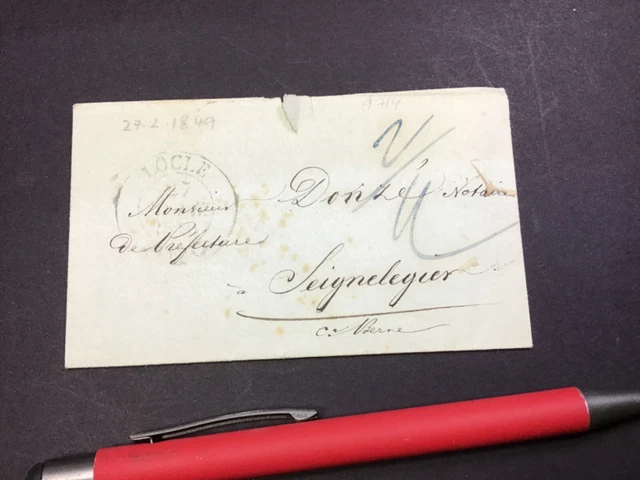 27-2-1849
9714
LOCLE
Monsieur Donzé Notaire
de Préfecture
à Seignelegier
Ct Berne